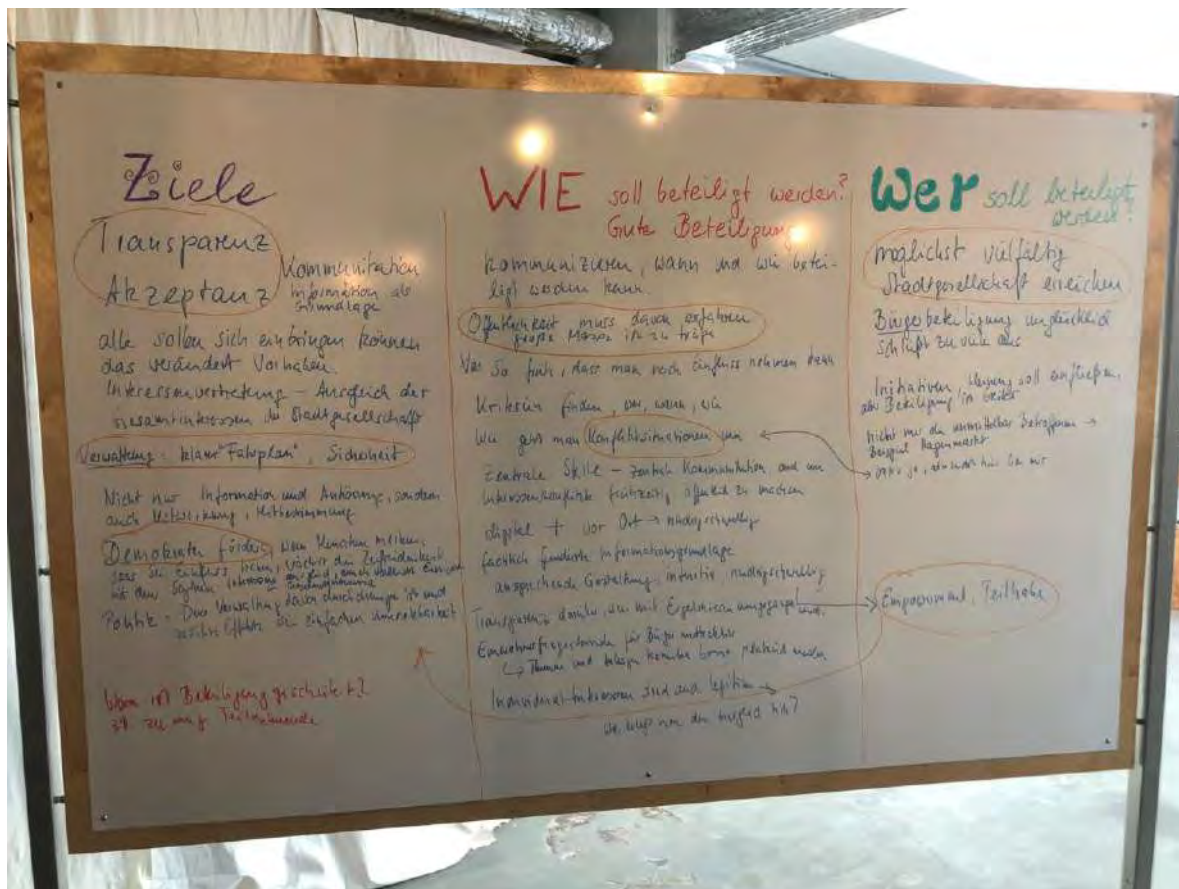 Ziele
Transparenz
Akzeptanz
Kommunikation
Information als
Grundlage
alle sollen sich einbringen können
das verändert Vorhaben.
Interessenvertretung – Ausgleich der
Gesamtinteressen der Stadtgesellschaft
Verwaltung: klarer "Fahrplan", Sicherheit
Nicht nur Information und Anhörung, sondern
auch Mitwirkung, Mitbestimmung
Demokratie fördern, wenn Menschen merken,
dass sie Einfluss haben, wächst die Zufriedenheit
mit dem System
Politik + Verwaltung davon durchdrungen ist und
positive Effekte
Wann ist Beteiligung gescheitert?
zB. zu wenig Teilnehmende
WIE soll beteiligt werden?
Gute Beteiligung
kommunizieren, wann und wie betei-
ligt werden kann.
Öffentlichkeit muss davon erfahren
große Masse ist zu träge
So früh, dass man noch Einfluss nehmen kann
Kriterien finden, wer, wann, wie
Wie geht man Konfliktsituationen um
Zentrale Stelle – zentrale Kommunikation auch um
Interessenkonflikte frühzeitig öffentlich zu machen
digital + vor Ort → niedrigschwellig
fachlich fundierte Informationsgrundlage
ansprechende Gestaltung, intuitiv, niedrigschwellig
Transparenz darüber, wie mit Ergebnissen umgegangen wird.
Einwohnerfragestunde für Bürger
↳ Themen und
Individual-Interessen sind auch legitim →
wo
Wer soll beteiligt
werden?
möglichst vielfältig
Stadtgesellschaft erreichen
Bürgerbeteiligung unglücklich
schließt zu viele aus
Initiativen, Meinung soll einfließen,
aber Beteiligung ist breiter
nicht nur die unmittelbar Betroffenen →
Beispiel Hagenmarkt
Empowerment, Teilhabe